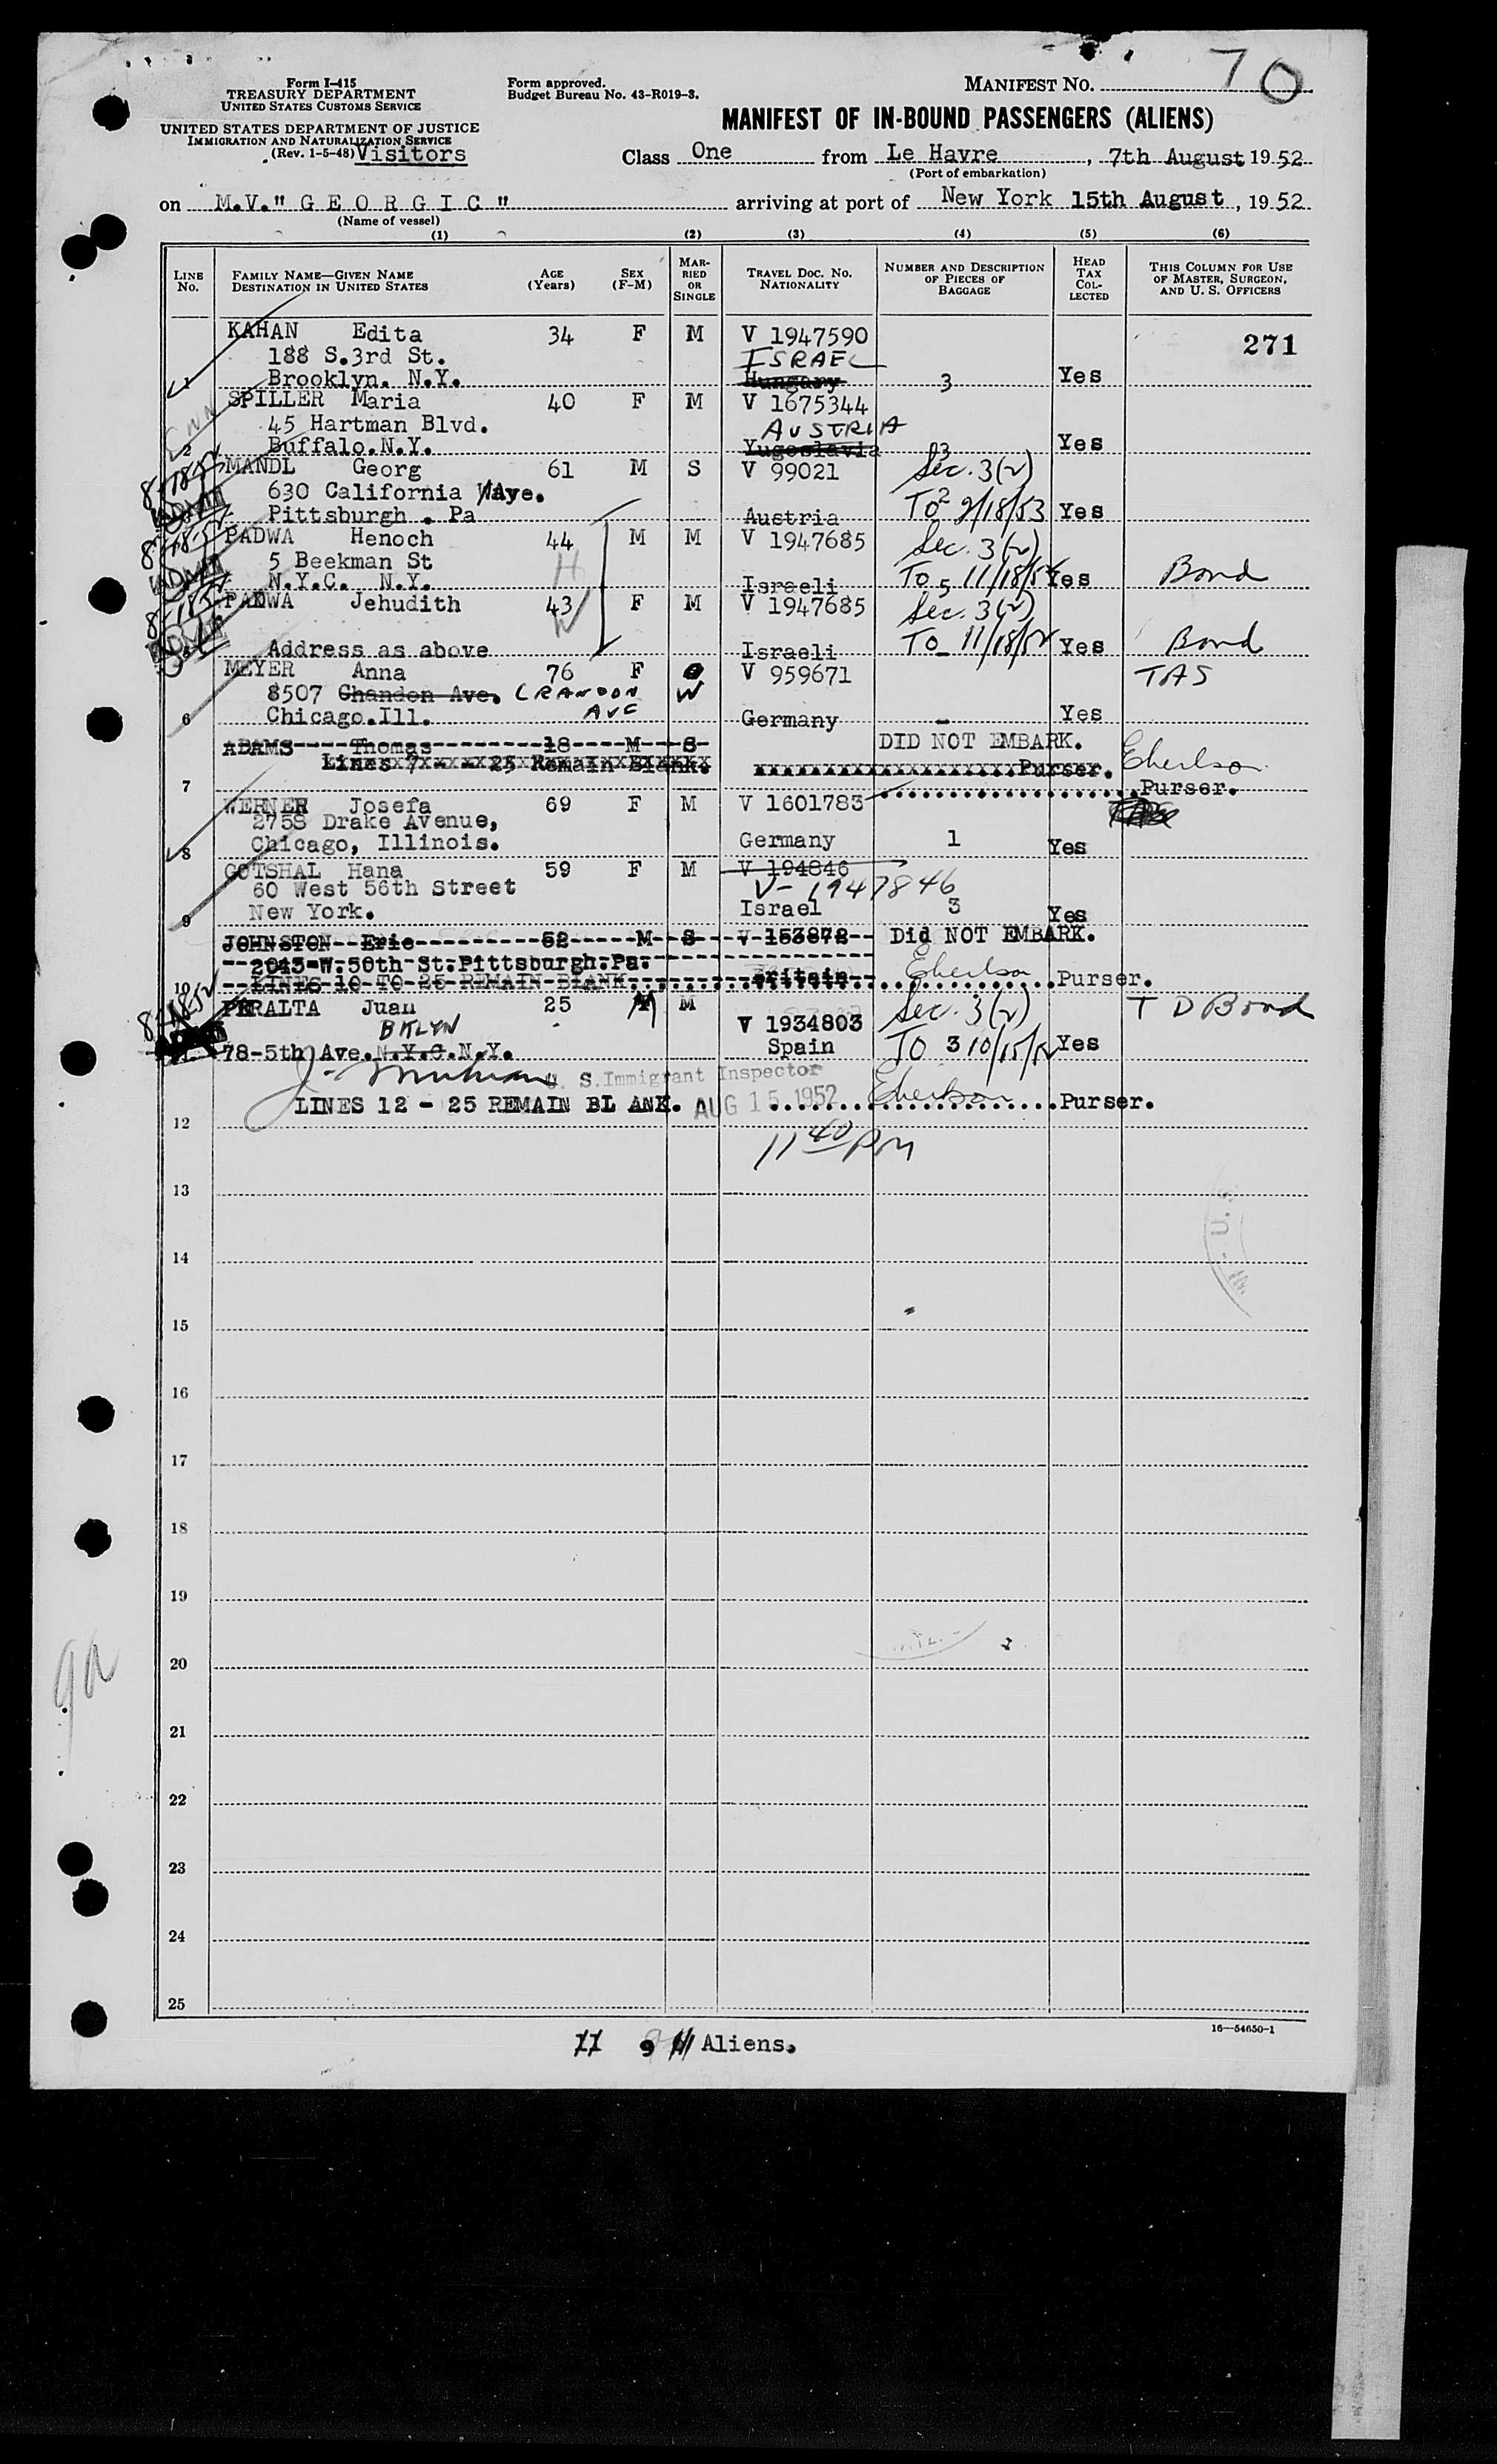 70
Form I-415
TREASURY DEPARTMENT
UNITED STATES CUSTOMS SERVICE
UNITED STATES DEPARTMENT OF JUSTICE
IMMIGRATION AND NATURALIZATION SERVICE
(Rev. 1-5-48) Visitors
Form approved.
Budget Bureau No. 43-R019-3.
MANIFEST No.
MANIFEST OF IN-BOUND PASSENGERS (ALIENS)
Class One from Le Havre, 7th August 1952
(Port of embarkation)
on M.V." G E O R G I C " arriving at port of New York 15th August, 1952
(Name of vessel)
(1) (2) (3) (4) (5) (6)
LINE No. FAMILY NAME—GIVEN NAME DESTINATION IN UNITED STATES AGE (Years) SEX (F-M) MARRIED OR SINGLE TRAVEL DOC. NO. NATIONALITY NUMBER AND DESCRIPTION OF PIECES OF BAGGAGE HEAD TAX COLLECTED THIS COLUMN FOR USE OF MASTER, SURGEON, AND U. S. OFFICERS
KAHAN Edita 34 F M V 1947590 271
188 S.3rd St. ISRAEL
1 Brooklyn. N.Y. Hungary 3 Yes
SPILLER Maria 40 F M V 1675344
45 Hartman Blvd. AUSTRIA
2 Buffalo.N.Y. Yugoslavia 3 Yes
8-18-52 MANDL Georg 61 M S V 99021 Sec. 3(2)
ADMIT 630 California Ave.
Pittsburgh . Pa Austria 2 To 2/18/53 Yes
8-18-52 PADWA Henoch 44 M M V 1947685 Sec. 3(2)
ADMIT 5 Beekman St H
N.Y.C. N.Y. Israeli 5 To 11/18/52 Yes Bond
8-18-52 PADWA Jehudith 43 F M V 1947685 Sec. 3(2)
ADMIT W
5 Address as above Israeli - To 11/18/52 Yes Bond
MEYER Anna 76 F W V 959671 TAS
8507 Chandon Ave. CRANDON AVE
6 Chicago.Ill. Germany - Yes
ADAMS----Thomas---------18----M---S- DID NOT EMBARK.
Lines 7 - - 25 Remain Blank. Purser. Eherlson
7 Purser.
WERNER Josefa 69 F M V 1601783
2758 Drake Avenue,
8 Chicago, Illinois. Germany 1 Yes
GOTSHAL Hana 59 F M V 194846
60 West 56th Street V- 1947846
9 New York. Israel 3 Yes
JOHNSTON--Eric----------52-----M--S---V-153872-- Did NOT EMBARK.
--2043-W.50th-St.Pittsburgh.Pa.
10 --LINES-10-TO-25-REMAIN-BLANK. Britain-- Eherlson Purser.
8-18-52 PERALTA Juan 25 M M V 1934803 Sec. 3(2) T D Bond
BKLYN
78-5th Ave.N.Y.C.N.Y. Spain 3 To 10/15/52 Yes
U. S. Immigrant Inspector
LINES 12 - 25 REMAIN BL ANK. AUG 15 1952 Eherlson Purser.
12
11 40 PM
13
14
15
16
17
18
19
20
21
22
23
24
25
16—54650-1
11 9 Aliens.